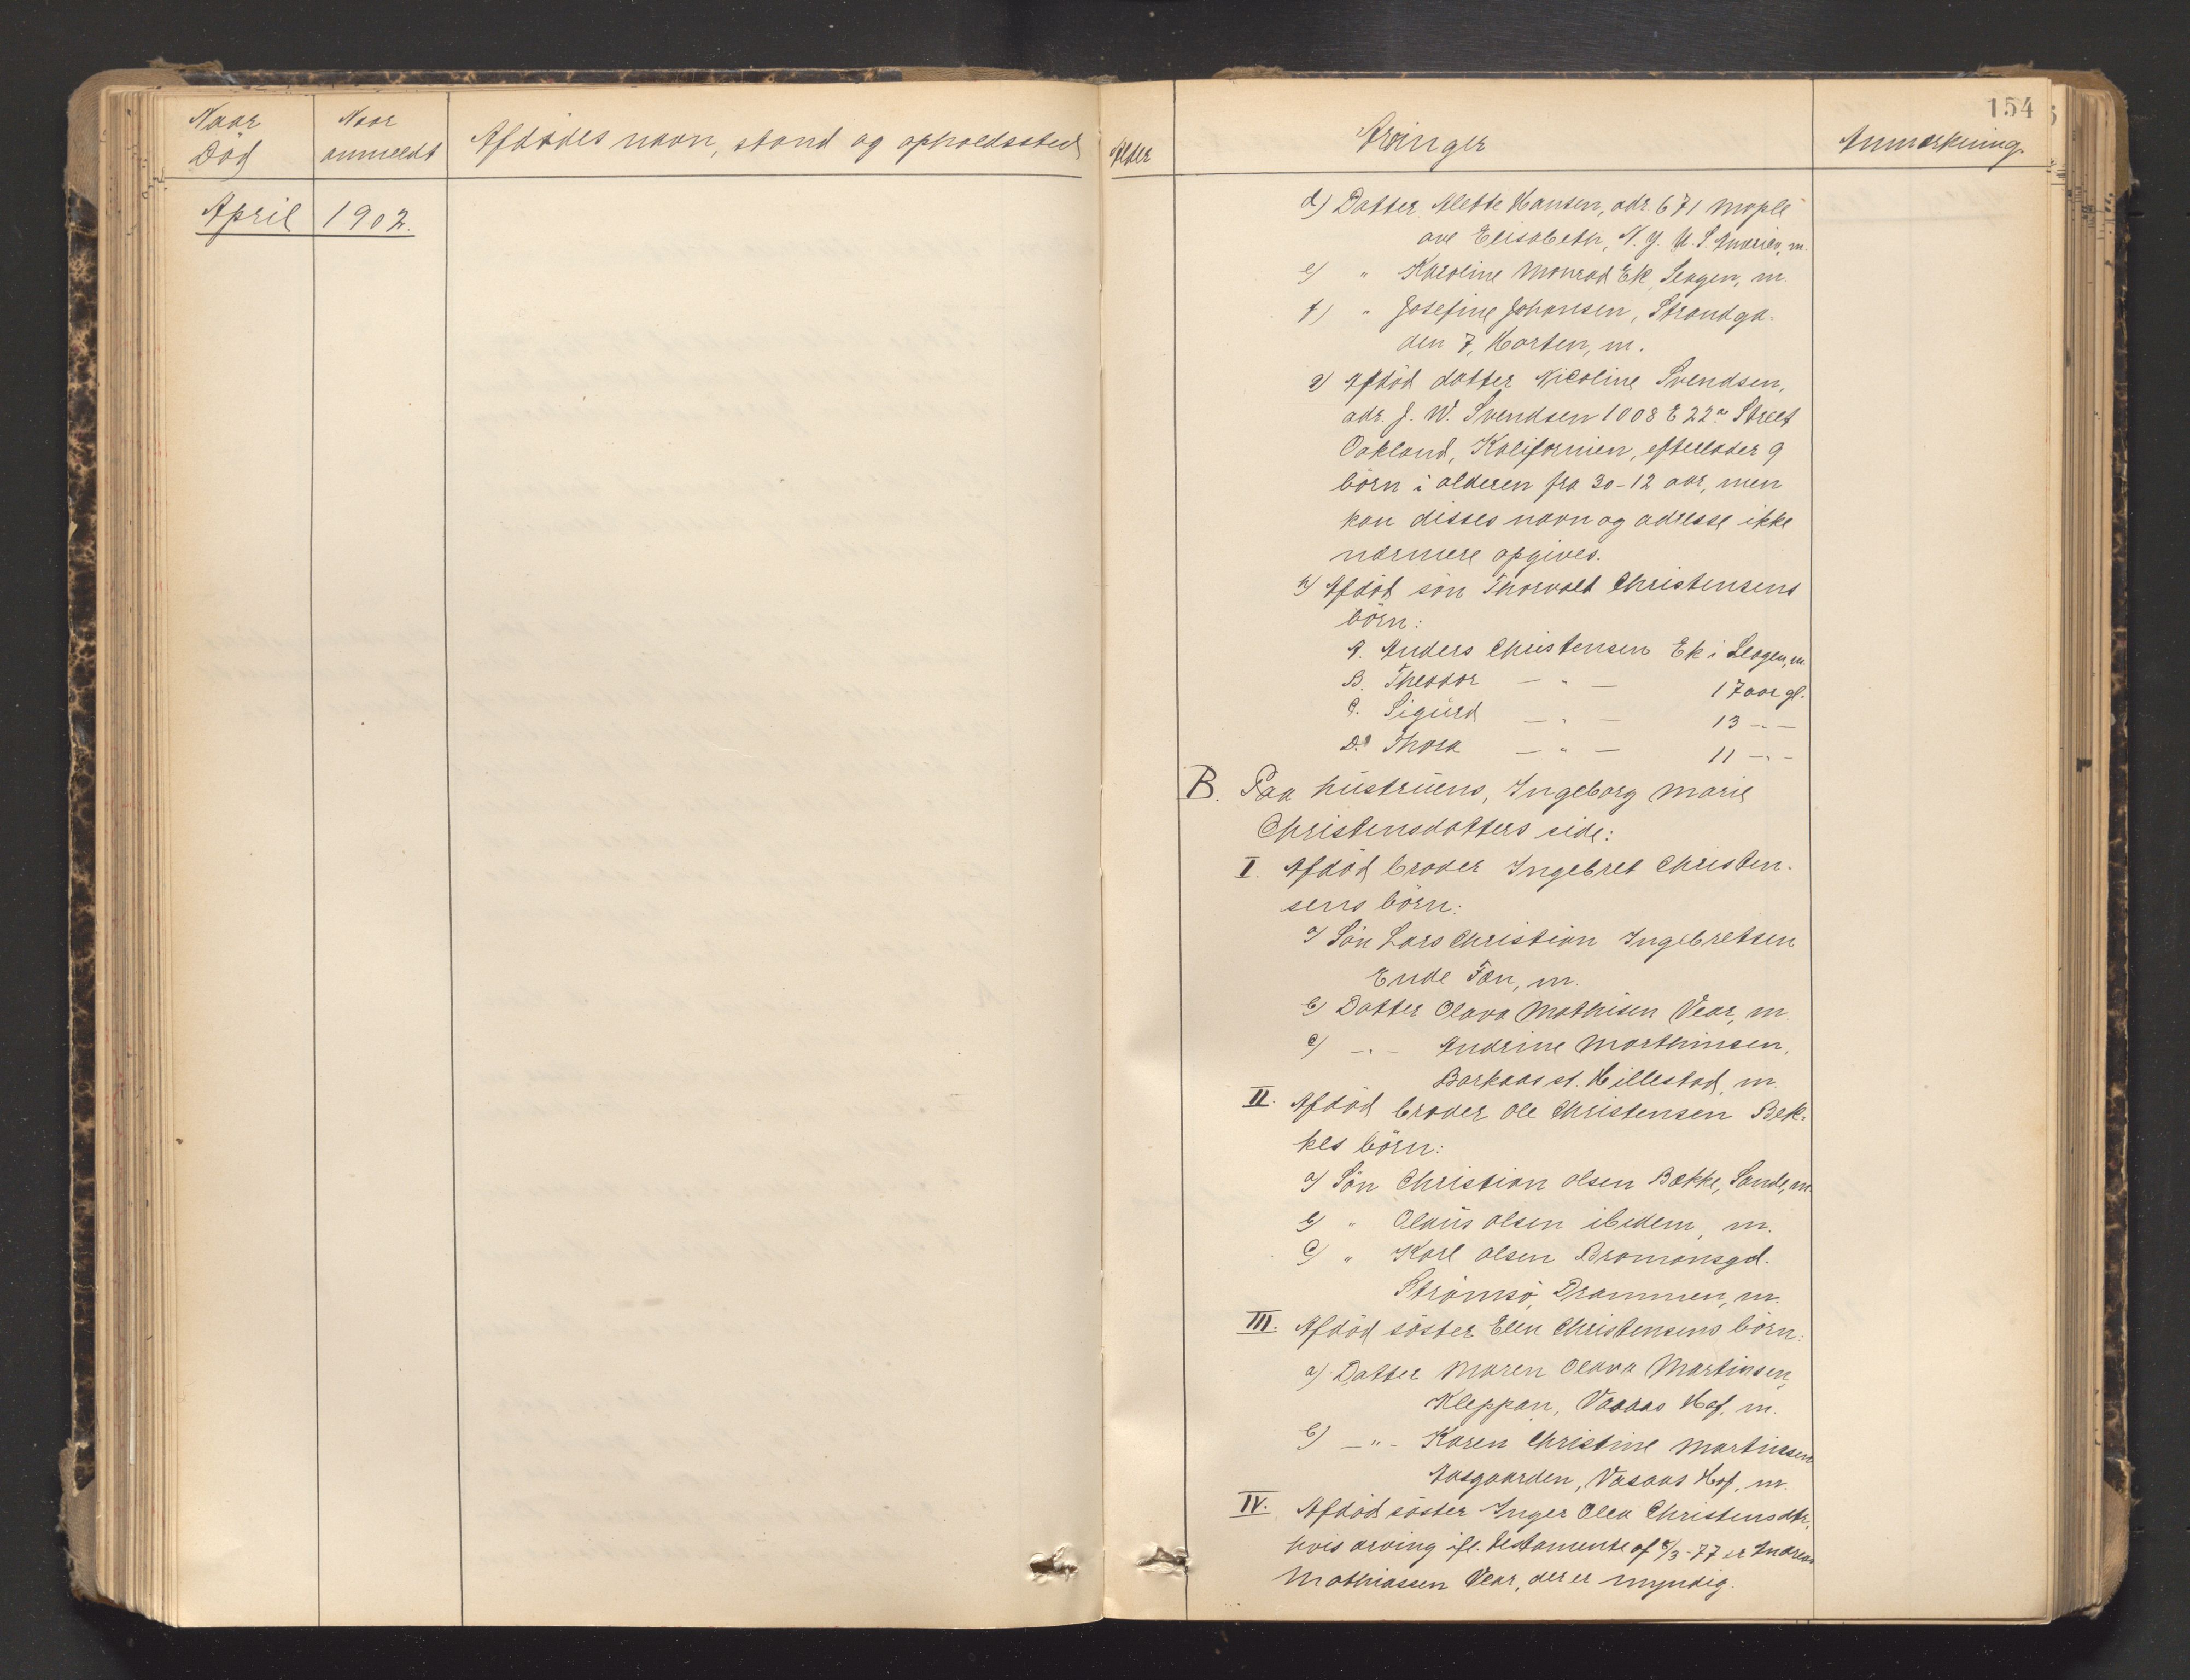 Naar
Död
Naar
anmeldt
Afdödes navn, stand og opholdssted
Alder
Arvinger
154
Anmerkning.
April 1902.
d) Datter Alette Hansen, adr. 671 Maple
ave Elisabeth, N. Y. U. S. America, m.
e) " Karoline Monrad Ek, Slagen, m.
f) " Josefine Johansen, Strandga-
den 7, Horten, m.
g) Afdöd datter Nicoline Svendsen,
adr. J. W. Svendsen 1008 E 22 Street
Oakland, Kalifornien, efterlader 9
börn i alderen fra 30-12 aar, men
kan disses navn og adresse ikke
nærmere opgives.
h) Afdöd sön Thorvald Christensens
börn:
A. Anders Christensen Ek i Slagen, m.
B. Theodor — " — 17 aar gl.
C. Sigurd — " — 13 - " -
D. Thora — " — 11 - " -
B. Paa hustruens, Ingeborg Marie
Christensdatters side:
I. Afdöd broder Ingebret Christen-
sens börn:
a) Sön Lars Christian Ingebretsen
Ende Fon, m.
b) Datter Olava Mathisen Vear, m.
c) - " - Andrine Marthinsen,
Barkaas st. Hillestad, m.
II. Afdöd broder Ole Christensen Bek-
kes börn:
a) Sön Christian Olsen Bække, Sande, m.
b) " Olaus Olsen ibidem, m.
c) " Karl Olsen Bromansgd.
Strömsö, Drammen, m.
III. Afdöd söster Elen Christensens börn:
a) Datter Maren Olava Martinsen,
Kleppan, Vaaas Hof, m.
b) - " - Karen Christine Martinsen
Aasgaarden, Vasaas Hof, m.
IV. Afdöd söster Inger Olea Christensdtr,
hvis arving ifl. testamente af 8/3-77 er Andreas
Mathiassen Vear, der er myndig.